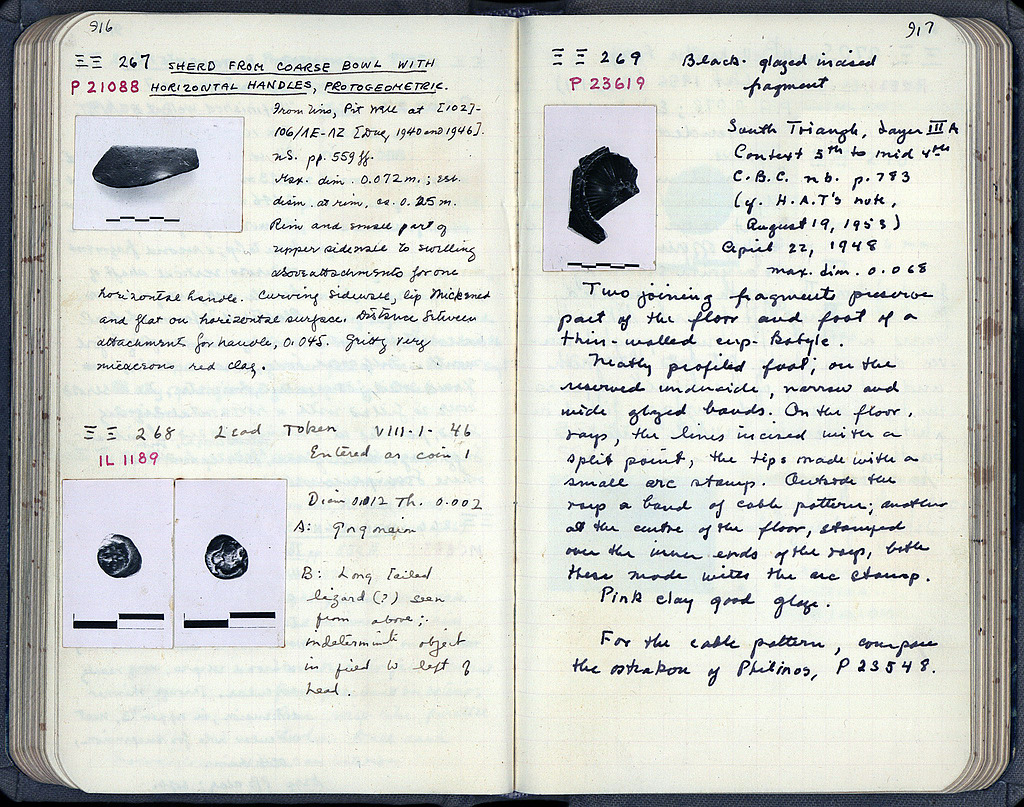 916
ΞΞ 267 SHERD FROM COARSE BOWL WITH
P 21088 HORIZONTAL HANDLES, PROTOGEOMETRIC.
From Pit Well at [102]-
106/ΛE-ΛZ [Dug, 1940 and 1946].
nb. pp. 559 ff.
Max. dim. 0.072 m.; est.
diam. at rim, ca. 0.25 m.
Rim and small part of
upper sidewall to swelling
above attachments for one
horizontal handle. Curving sidewall, lip thickened
and flat on horizontal surface. Distance between
attachments for handle, 0.045. Gritty very
micaceous red clay.
ΞΞ 268 Lead Token VIII-1-46
IL 1189 Entered as coin 1
Diam 0.012 Th. 0.002
A: gorgoneion
B: Long tailed
lizard (?) seen
from above;
indeterminate object
in field to left of
head.
917
ΞΞ 269 Black-glazed incised
P 23619 fragment
South Triangle, Layer III A
Context 5th to mid 4th
C.B.C. nb. p. 783
(cf. H.A.T's note,
August 19, 1953)
April 22, 1948
max. dim. 0.068
Two joining fragments preserve
part of the floor and foot of a
thin-walled cup-
Neatly profiled foot; on the
reserved underside, narrow and
wide glazed bands. On the floor,
rays, the lines incised with a
split point, the tips made with a
small arc stamp. Outside the
rays a band of cable pattern; another
at the centre of the floor, stamped
over the inner ends of the rays, both
these made with the arc stamp.
Pink clay good glaze.
For the cable pattern, compare
the ostrakon of Philinos, P 23548.